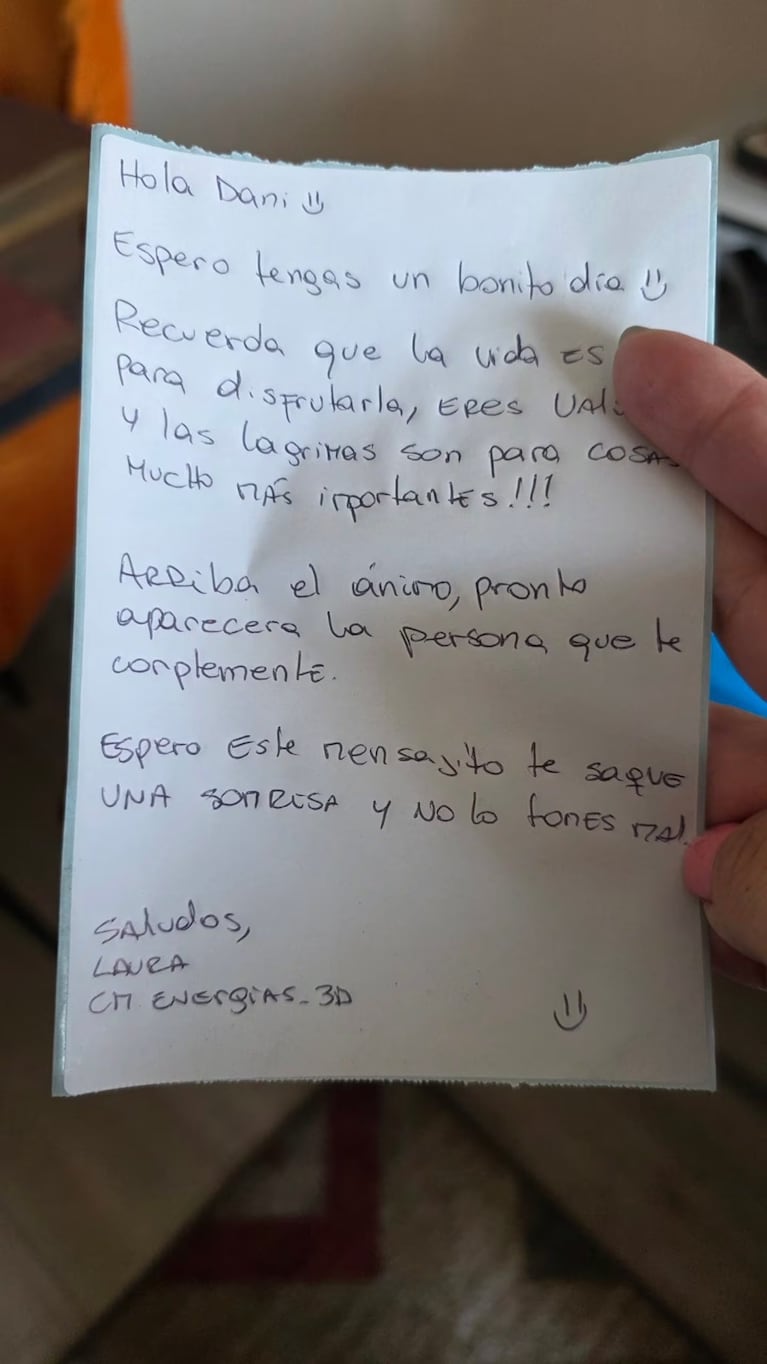 Hola Dani
Espero tengas un bonito día
Recuerda que la vida es
para disfrutarla, ERES
y las lagrimas son para cosas
MUCHO MÁS importantes!!!
ARRiba el ánimo, pronto
aparecera la persona que te
complemente.
Espero Este mensajito te saque
UNA SONRISA y NO lo tomes mal.
Saludos,
LAURA
CM ENERGIAS_3D